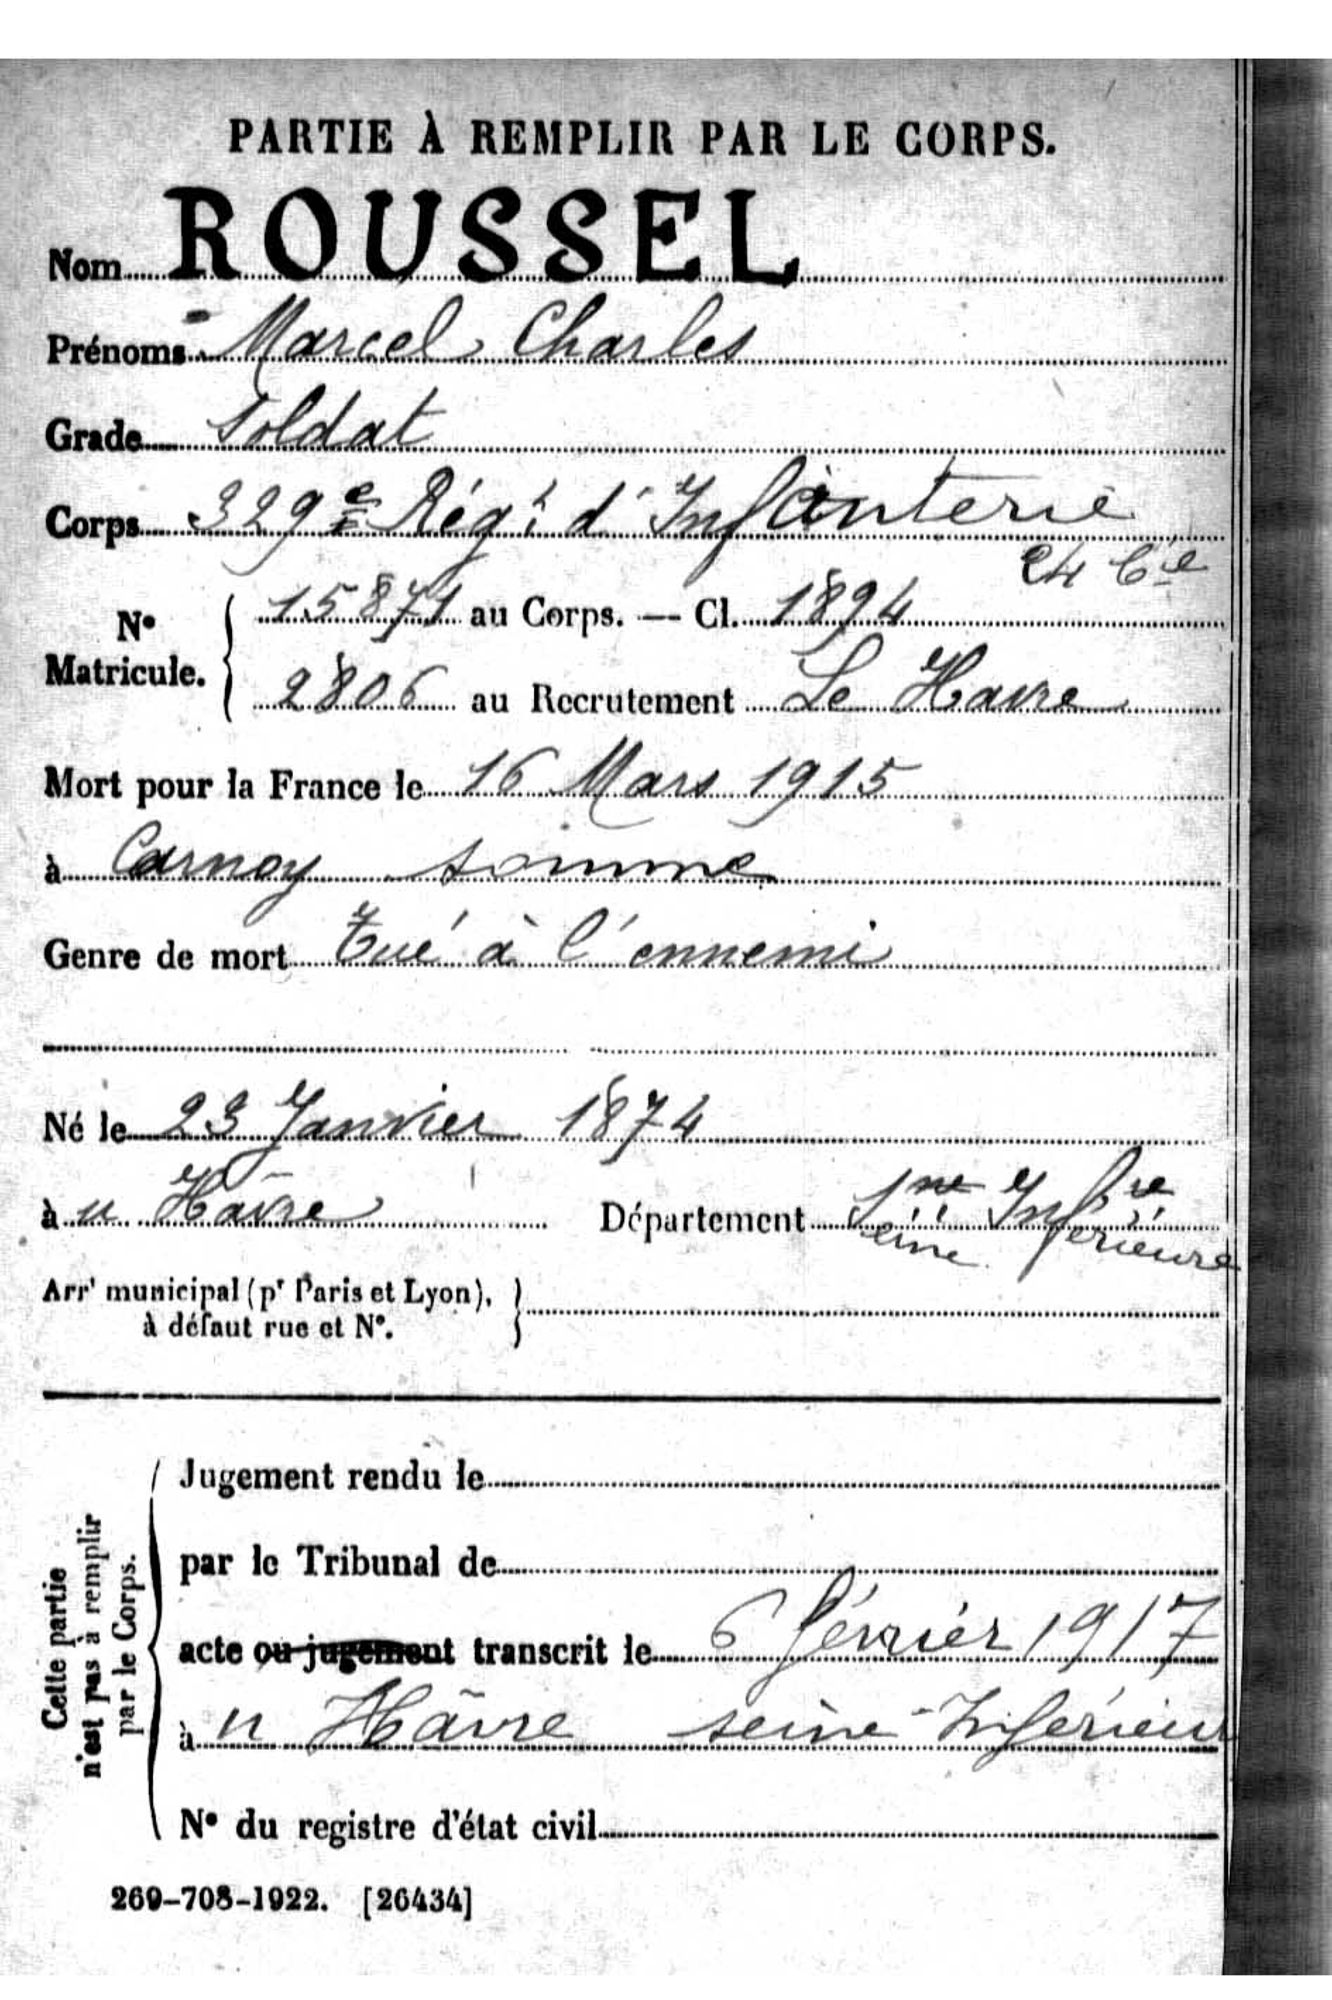 PARTIE À REMPLIR PAR LE CORPS.
Nom ROUSSEL
Prénoms Marcel Charles
Grade Soldat
Corps 329e Régt d'Infanterie
24 Cie
No Matricule. { 15871 au Corps. — Cl. 1894
2806 au Recrutement Le Havre
Mort pour la France le 16 Mars 1915
à Carnoy somme
Genre de mort Tué à l'ennemi
Né le 23 Janvier 1874
à u Hâvre Département Sne Infre
eine férieure
Arrt municipal (pr Paris et Lyon), }
à défaut rue et No.
Cette partie
n'est pas à remplir
par le Corps.
Jugement rendu le
par le Tribunal de
acte ou jugement transcrit le 6 février 1917
à u Hâvre seine-Inférieur
No du registre d'état civil
269-708-1922. [26434]